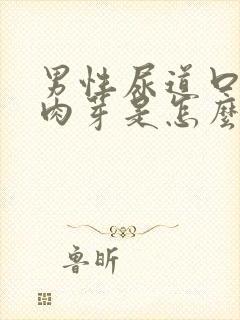 男性尿道口
肉芽是怎麼
魯昕